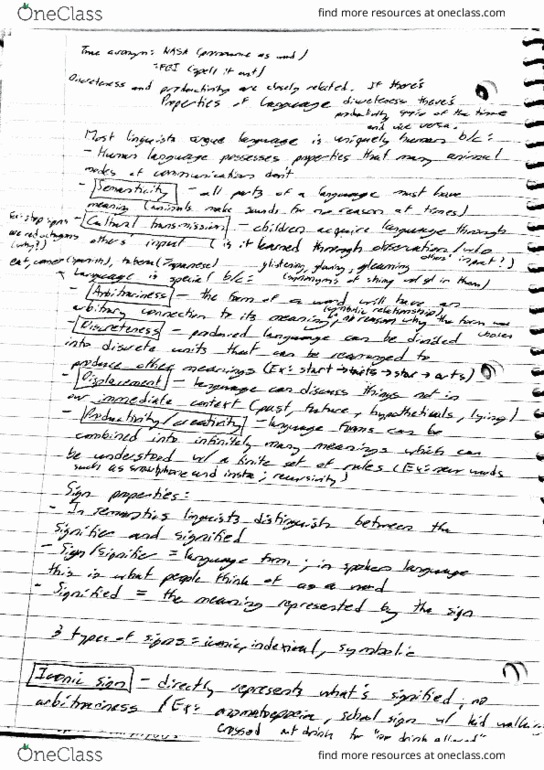 OneClass
find more resources at oneclass.com
True acronym: NASA (pronounce as word)
FBI (spell it out)
Discreteness and productivity are closely related. If there's
Properties of Language discreteness there's
productivity of the time
and vice versa.
Most linguists argue language is uniquely human b/c:
- Human language possesses properties that many animal
modes of communication don't
- Semanticity - all parts of a language must have
meaning (animals make sounds for no reason at times)
Ex: stop signs - Cultural transmission - children acquire language through
are octagons others input (is it learned through observation w/o
(why?) others' input?)
eat, comer (Spanish), taberu (Japanese) glistening, glowing, gleaming
Language is special b/c: (synonyms of shiny gl in them)
- Arbitrariness - the form of a word will have an
(symbolic relationship)
arbitrary connection to its meaning, no reason why the form was
- Discreteness - produced language can be divided chosen
into discrete units that can be rearranged to
produce other meanings (Ex: start → → star → arts)
- Displacement - language can discuss things not in
our immediate context (past, future, hypotheticals, lying)
- Productivity/creativity - language forms can be
combined into infinitely many meanings which can
be understood w/ a finite set of rules (Ex: new words
such as smartphone and insta; recursivity)
Sign properties:
- In semantics linguists distinguish between the
signifier and signified
- Sign/signifier = language form; in spoken language
this is what people think of as a word
- Signified = the meaning represented by the sign
3 types of signs: iconic, indexical, symbolic
Iconic sign - directly represents what's signified; no
arbitrariness (Ex: onomatopoeia, school sign w/ kid walking
crossed out drink for "no drink allowed"
OneClass
find more resources at oneclass.com